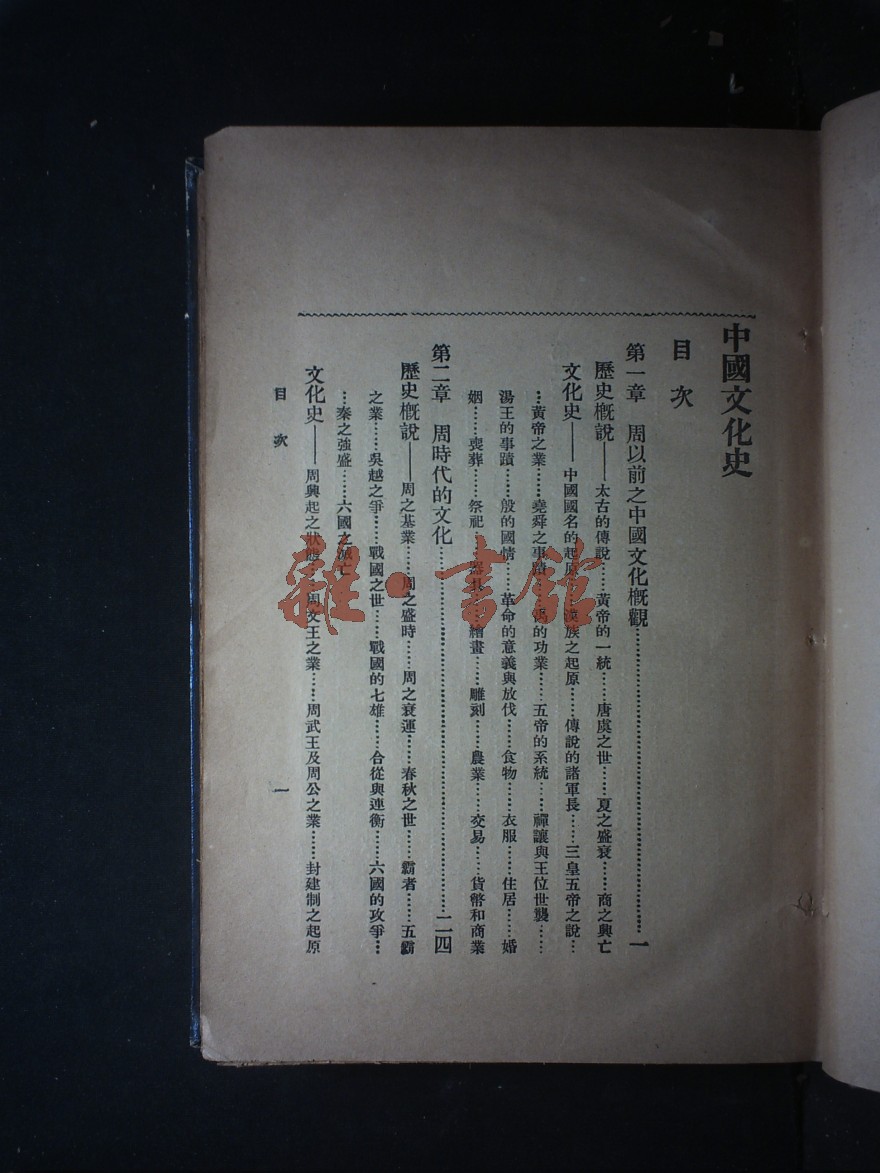 中國文化史
目次
第一章 周以前之中國文化概觀……一
歷史概說——太古的傳說……黃帝的一統……唐虞之世……夏之盛衰……商之興亡
文化史——中國國名的起原……漢族之起原……傳說的諸軍長……三皇五帝之說…
…黃帝之業……堯舜之事蹟……禹的功業……五帝的系統……禪讓與王位世襲……
湯王的事蹟……殷的國情……革命的意義與放伐……食物……衣服……住居……婚
姻……喪葬……祭祀……器具……繪畫……雕刻……農業……交易……貨幣和商業
第二章 周時代的文化……二四
歷史概說——周之基業……周之盛時……周之衰運……春秋之世……霸者……五霸
之業……吳越之爭……戰國之世……戰國的七雄……合從與連衡……六國的攻爭…
…秦之強盛……六國之滅亡
文化史——周興起之狀態……周文王之業……周武王及周公之業……封建制之起原
目次
一
雜·書館